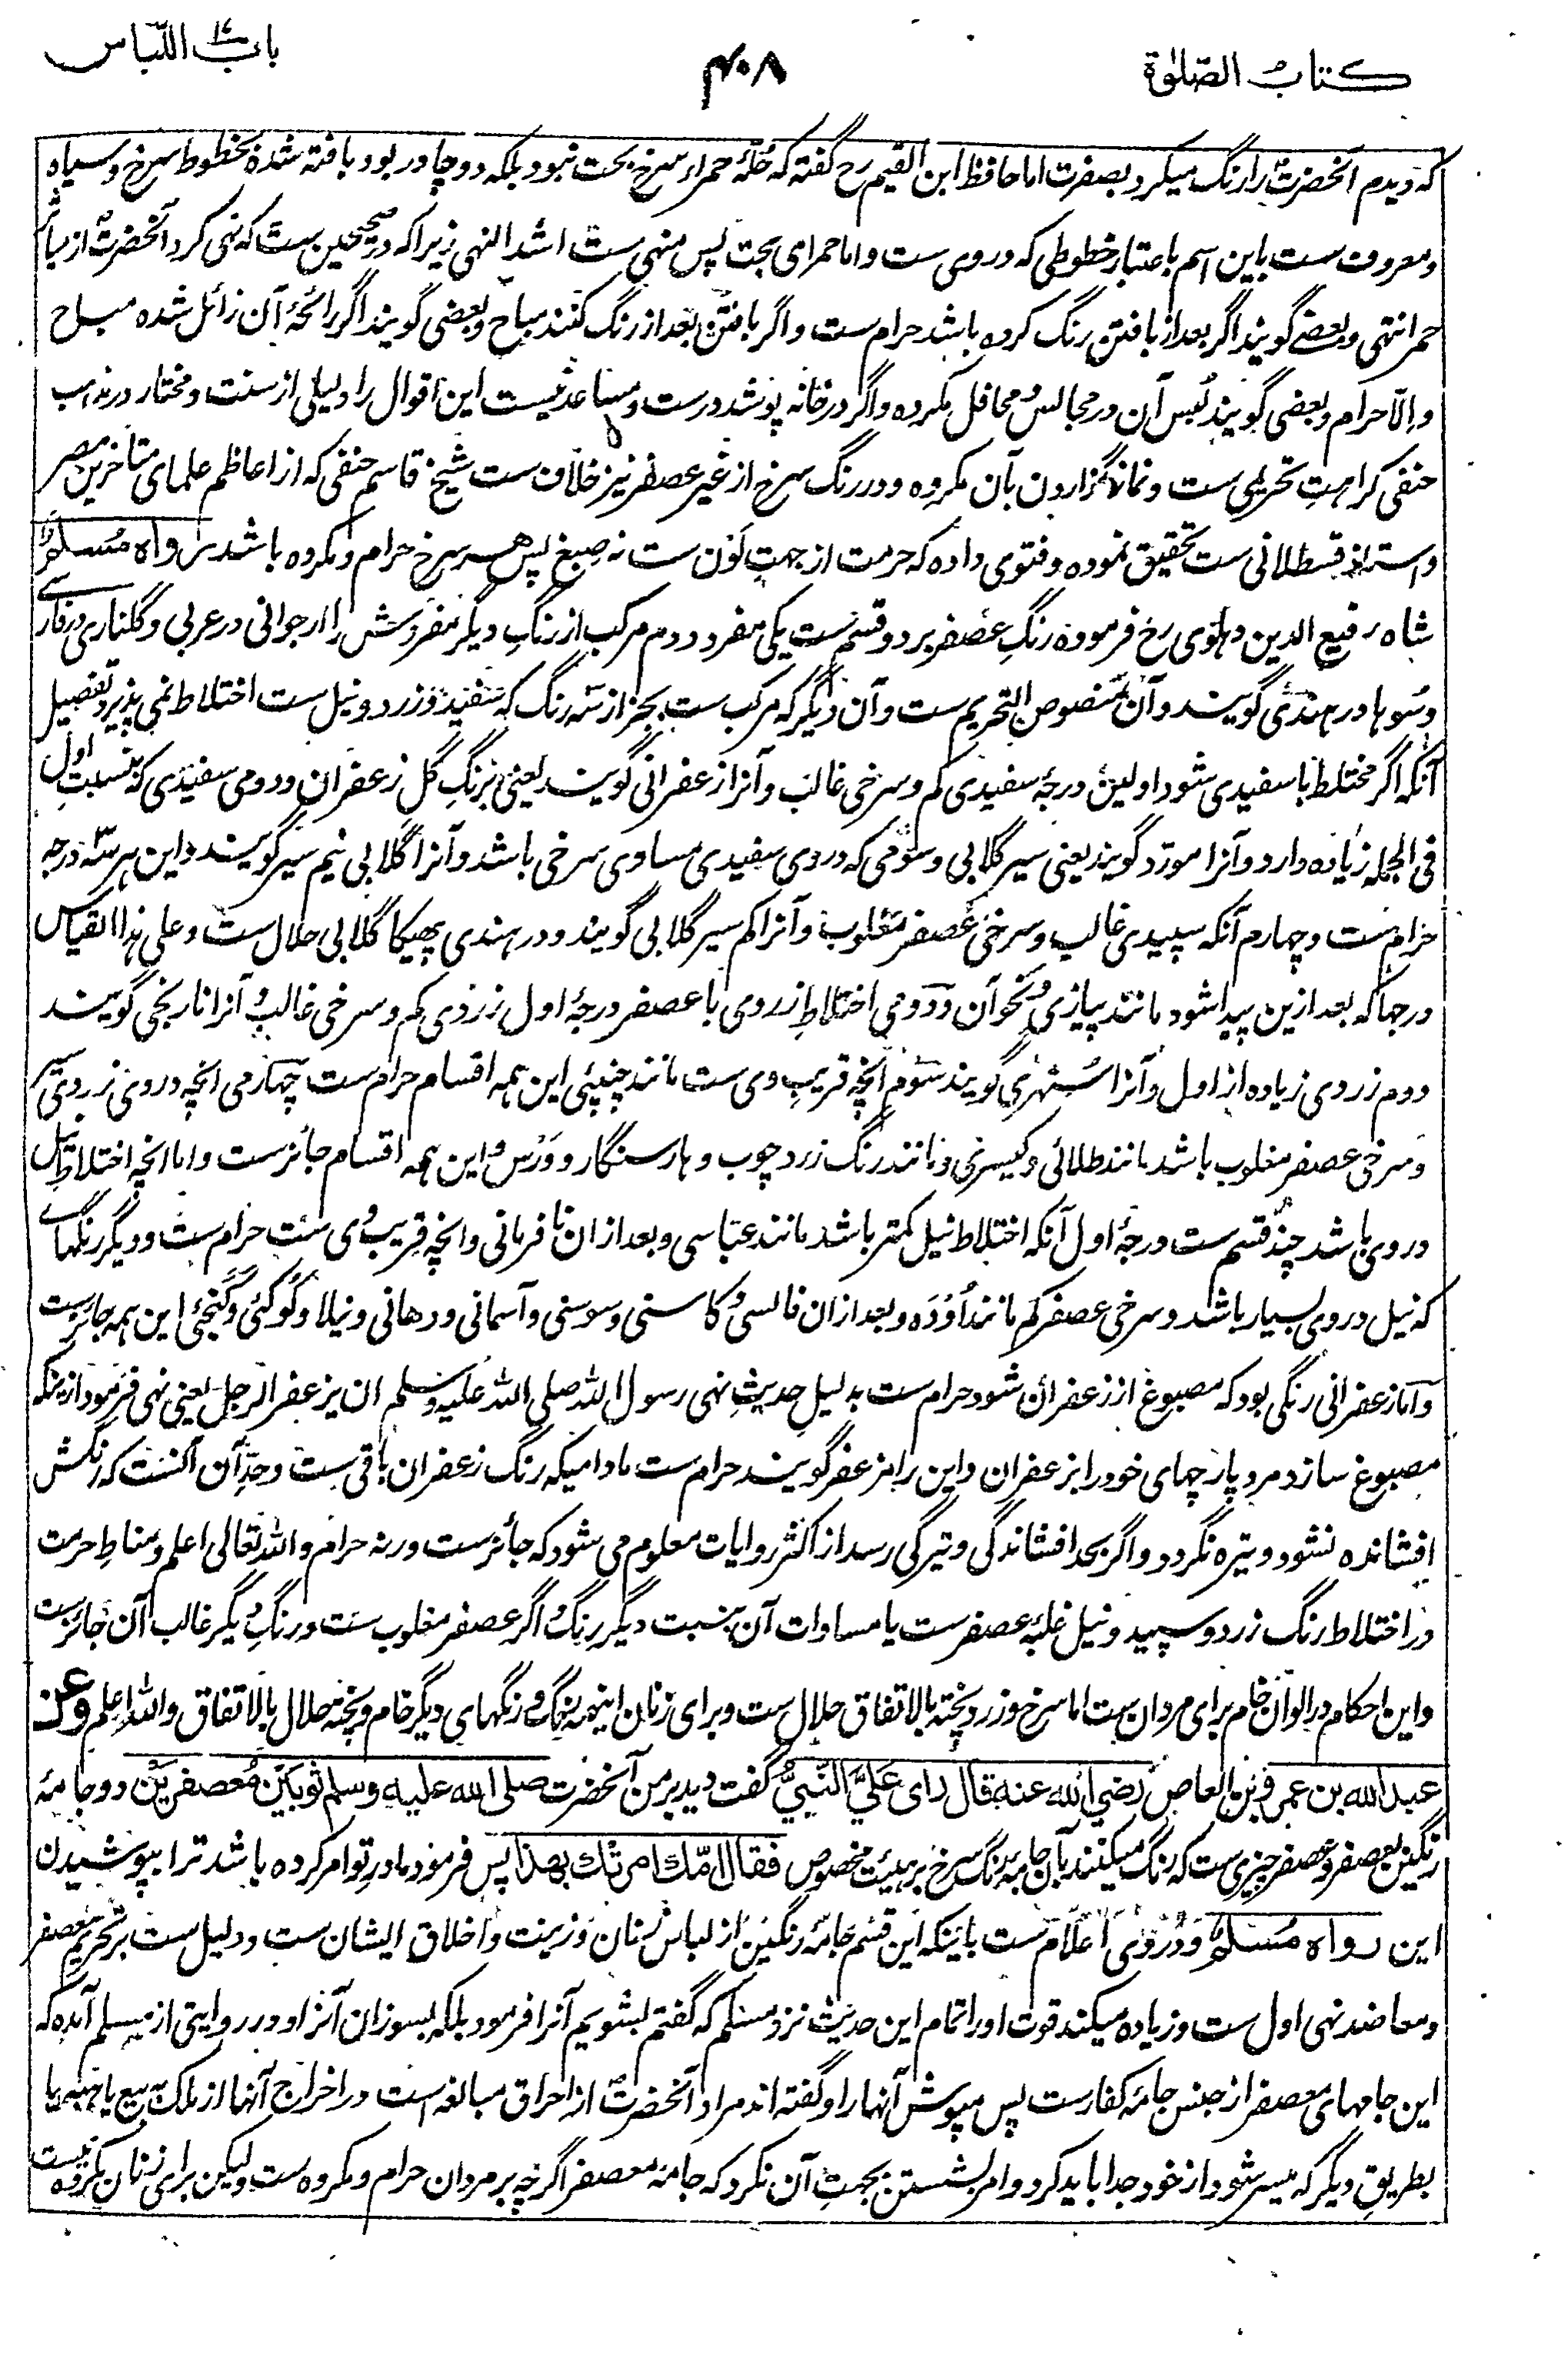 کتاب الصّلوٰة
۴۰۸
باب اللّباس
که دیدم آنحضرت را رنگ میکرد بصفرت اما حافظ ابن القیم رح گفته که حُلّهٔ حمراء سرخ بحت نبود بلکه دو چادر بود بافته شده بخطوط سرخ و سیاه
و معروف ست باین اسم باعتبار خطوطی که در وی ست و اما حمرای بحت پس منهی ست اشد النهی زیرا که در صحیحین ست که نهی کرد آنحضرت از میاثر
حمر انتهی و بعضے گویند اگر بعد از بافتن رنگ کرده باشد حرام ست و اگر بافتن بعد از رنگ کنند مباح و بعضی گویند اگر رائحهٔ آن زائل شده مباح
و الّا حرام و بعضی گویند لُبس آن در مجالس و محافل مکروه و اگر در خانه پوشد درست و مساعد نیست این اقوال را دلیلی از سنت و مختار در مذهب
حنفی کراهتِ تحریمی ست و نماز گزاردن بآن مکروه و در رنگ سرخ از غیر عصفر نیز خلاف ست شیخ قاسم حنفی که از اعاظم علمای متأخرین مصر
و استاذ قسطلانی ست تحقیق نموده و فتوی داده که حرمت از جهتِ لَون ست نه صِبغ پس هر سرخ حرام و مکروه باشد رواه مُسلم
شاه رفیع الدین دهلوی رح فرموده رنگِ عصفر بر دو قسم ست یکی منفرد دوم مرکب از رنگِ دیگر منفردش را ارجوانی در عربی و گلناری در فارسے
و سُوها در هندی گویند و آن منصوص التحریم ست و آن دیگر که مرکب ست بجز از سه رنگ که سفید و زرد و نیل ست اختلاط نمی پذیرد تفصیل
آنکه اگر مختلط با سفیدی شود اولین درجهٔ سفیدی کم و سرخی غالب و آنرا زعفرانی گویند یعنی برنگِ گل زعفران و دومی سفیدی که بنسبتِ اول
فی الجمله زیاده دارد و آنرا مورّد گویند یعنی سیر گلابی و سومی که در وی سفیدی مساوی سرخی باشد و آنرا گلابی نیم سیر گویند و این هر سه درجه
حرام ست و چهارم آنکه سپیدی غالب و سرخی عصفر مغلوب و آنرا کم سیر گلابی گویند و در هندی پھیکا گلابی حلال ست و علی هذا القیاس
درجها که بعد ازین پیدا شود مانند پیازی و نحو آن و دومی اختلاطِ زردی با عصفر درجهٔ اول زردی کم و سرخی غالب و آنرا نارنجی گویند
دوم زردی زیاده از اول و آنرا سُنهری گویند سوم آنچه قریبِ وی ست مانند چنپئی این همه اقسام حرام ست چهارمی آنچه در وی زردی
و سرخی عصفر مغلوب باشد مانند طلائی و کیسری و مانند رنگ زرد چوب و هار سنگار و وَرْس و این همه اقسام جائزست و اما آنچه اختلاطِ نیل
در وی باشد چند قسم ست درجهٔ اول آنکه اختلاط نیل کمتر باشد مانند عباسی و بعد از ان نافرمانی و آنچه قریبِ وی ست حرام ست و دیگر رنگهاے
که نیل در وی بسیار باشد و سرخی عصفر کم مانند اُوده و بعد از ان فالسی و کاسنی و سوسنی و آسمانی و دهانی و نیلا و کُوکئی و کنجئی این همه جائز ست
و اما زعفرانی رنگی بود که مصبوغ از زعفران شود حرام ست بدلیلِ حدیثِ نهی رسول الله صلی الله علیه وسلم ان یزعفر الرجل یعنی نهی فرمود ازینکه
مصبوغ سازد مرد پارچهای خود را بزعفران و این را مزعفر گویند حرام ست مادامیکه رنگ زعفران باقی ست و حدِّ آن آنست که رنگش
افشانده نشود و تیره نگردد و اگر بحد افشاندگی و تیرگی رسد از اکثر روایات معلوم می شود که جائز ست ورنه حرام و الله تعالی اعلم و مناطِ حرمت
در اختلاط رنگ زرد و سپید و نیل غلبهٔ عصفر ست یا مساوات آن بنسبت دیگر رنگ و اگر عصفر مغلوب ست و رنگِ دیگر غالب آن جائز ست
و این احکام در الوان خام برای مردان ست اما سرخ و زرد پخته بالاتفاق حلال ست و برای زنان اینهمه رنگ و رنگهای دیگر خام و پخته حلال بالاتفاق و الله اعلم وعن
عبد الله بن عمرو بن العاص رضی الله عنه قال رای عَلَیَّ النَّبیُّ گفت دید بر من آنحضرت صلی الله علیه وسلم ثوبَین مُعصفرَین دو جامهٔ
رنگین بعصفر و عصفر چیزی ست که رنگ میکنند بآن جامه برنگ سرخ بر هیئت مخصوص فقال امّك امرتك بهذا پس فرمود مادرِ تو امر کرده باشد ترا بپوشیدن
این رواه مُسلم و درُ وی اعلام ست باینکه این قسم جامهٔ رنگین از لباس زنان و زینت و اخلاق ایشان ست و دلیل ست بر تحریم معصفر
و معاضد نهی اول ست و زیاده میکند قوت او را تمام این حدیث نزد مسلم که گفتم بشویم آنرا فرمود بلکه بسوزان آنرا و در روایتی از مسلم آمده که
این جامهای معصفر از جنس جامهٔ کفار ست پس مپوش آنها را و گفته اند مراد آنحضرت از احراق مبالغه است در اخراج آنها از ملک به بیع یا هبه یا
بطریقِ دیگر که میسر شود از خود جدا باید کرد و امر بشستن بجهتِ آن نکرد که جامهٔ معصفر اگرچه بر مردان حرام و مکروه ست ولیکن برای زنان مکروه نیست